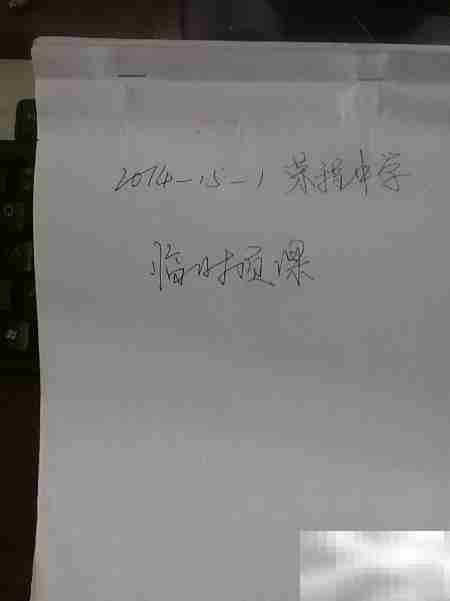 2014-15-1 荣程中学
临时顶课